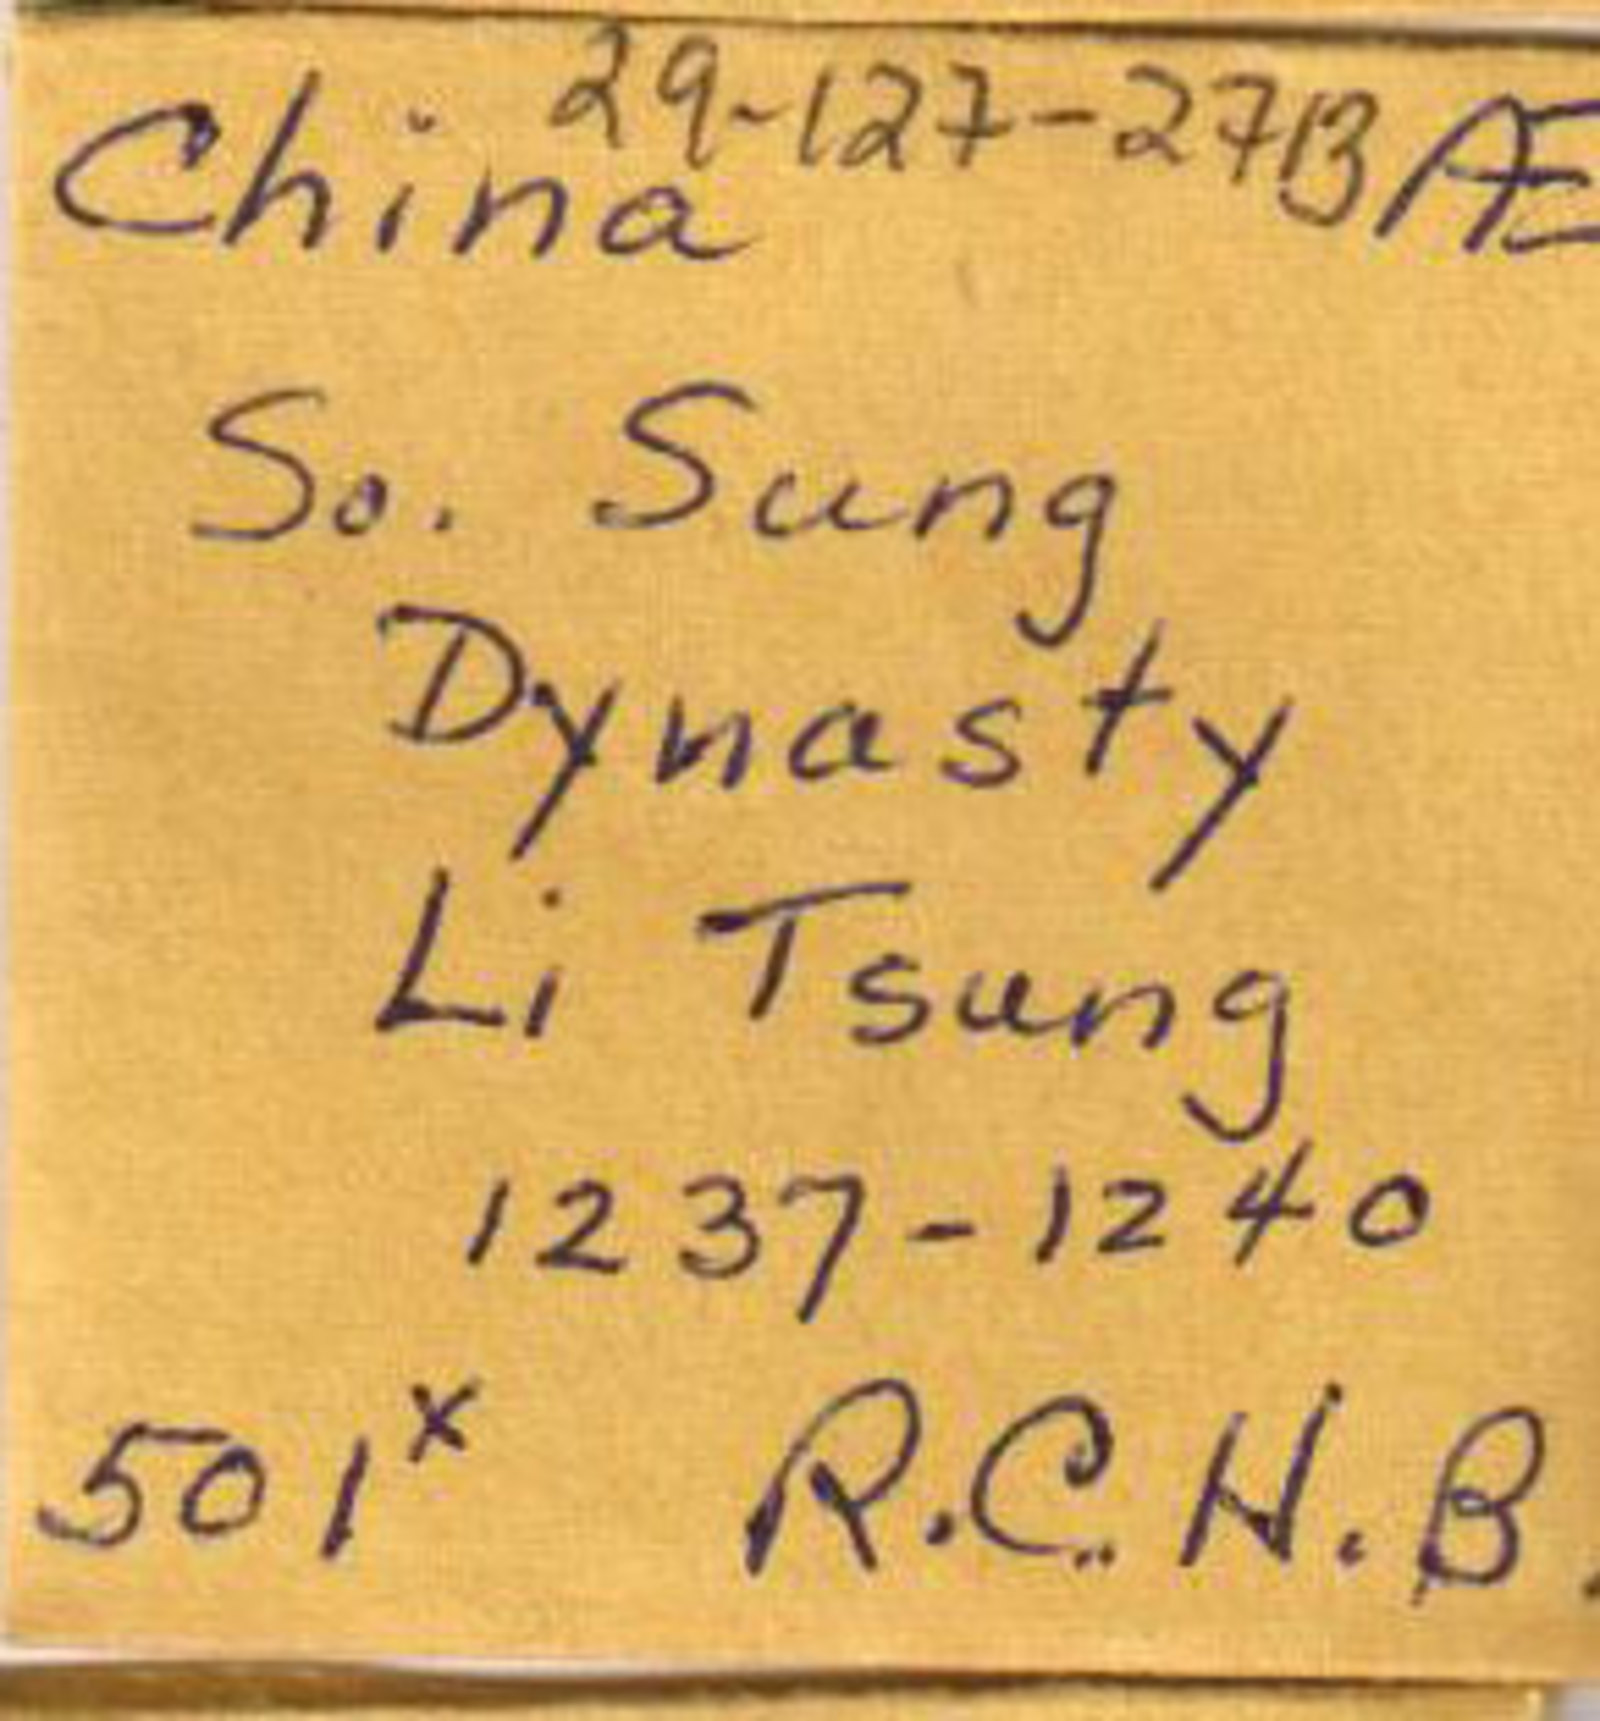 China 29-127-27B Æ
So. Sung
Dynasty
Li Tsung
1237-1240
501x R.C.H.B.